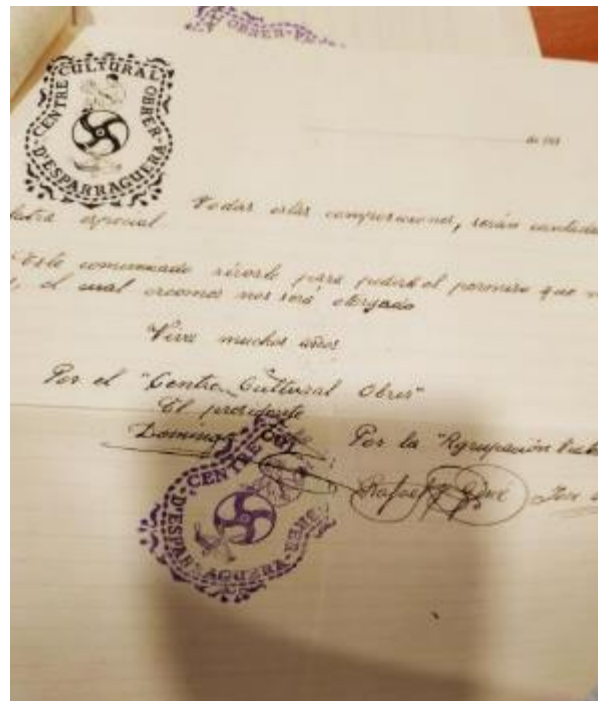 OBRER
CENTRE CULTURAL OBRER
D'ESPARRAGUERA
de 193
Todas estas composiciones, serán
especial
Este comunicado sirvale para pedirle el permiso que
, el cual creemos nos será otorgado
Viva muchos años
Por el "Centre Cultural Obrer"
El presidente
Domingo
Por la "Agrupación
Rafael Giné José
CENTRE CUL OBRER
D'ESPARRAGUERA